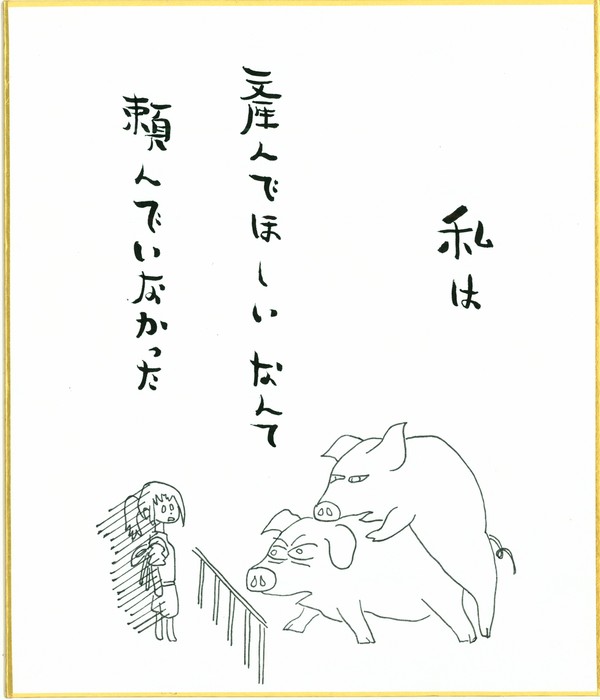 私は
産んでほしいなんて
頼んでいなかった